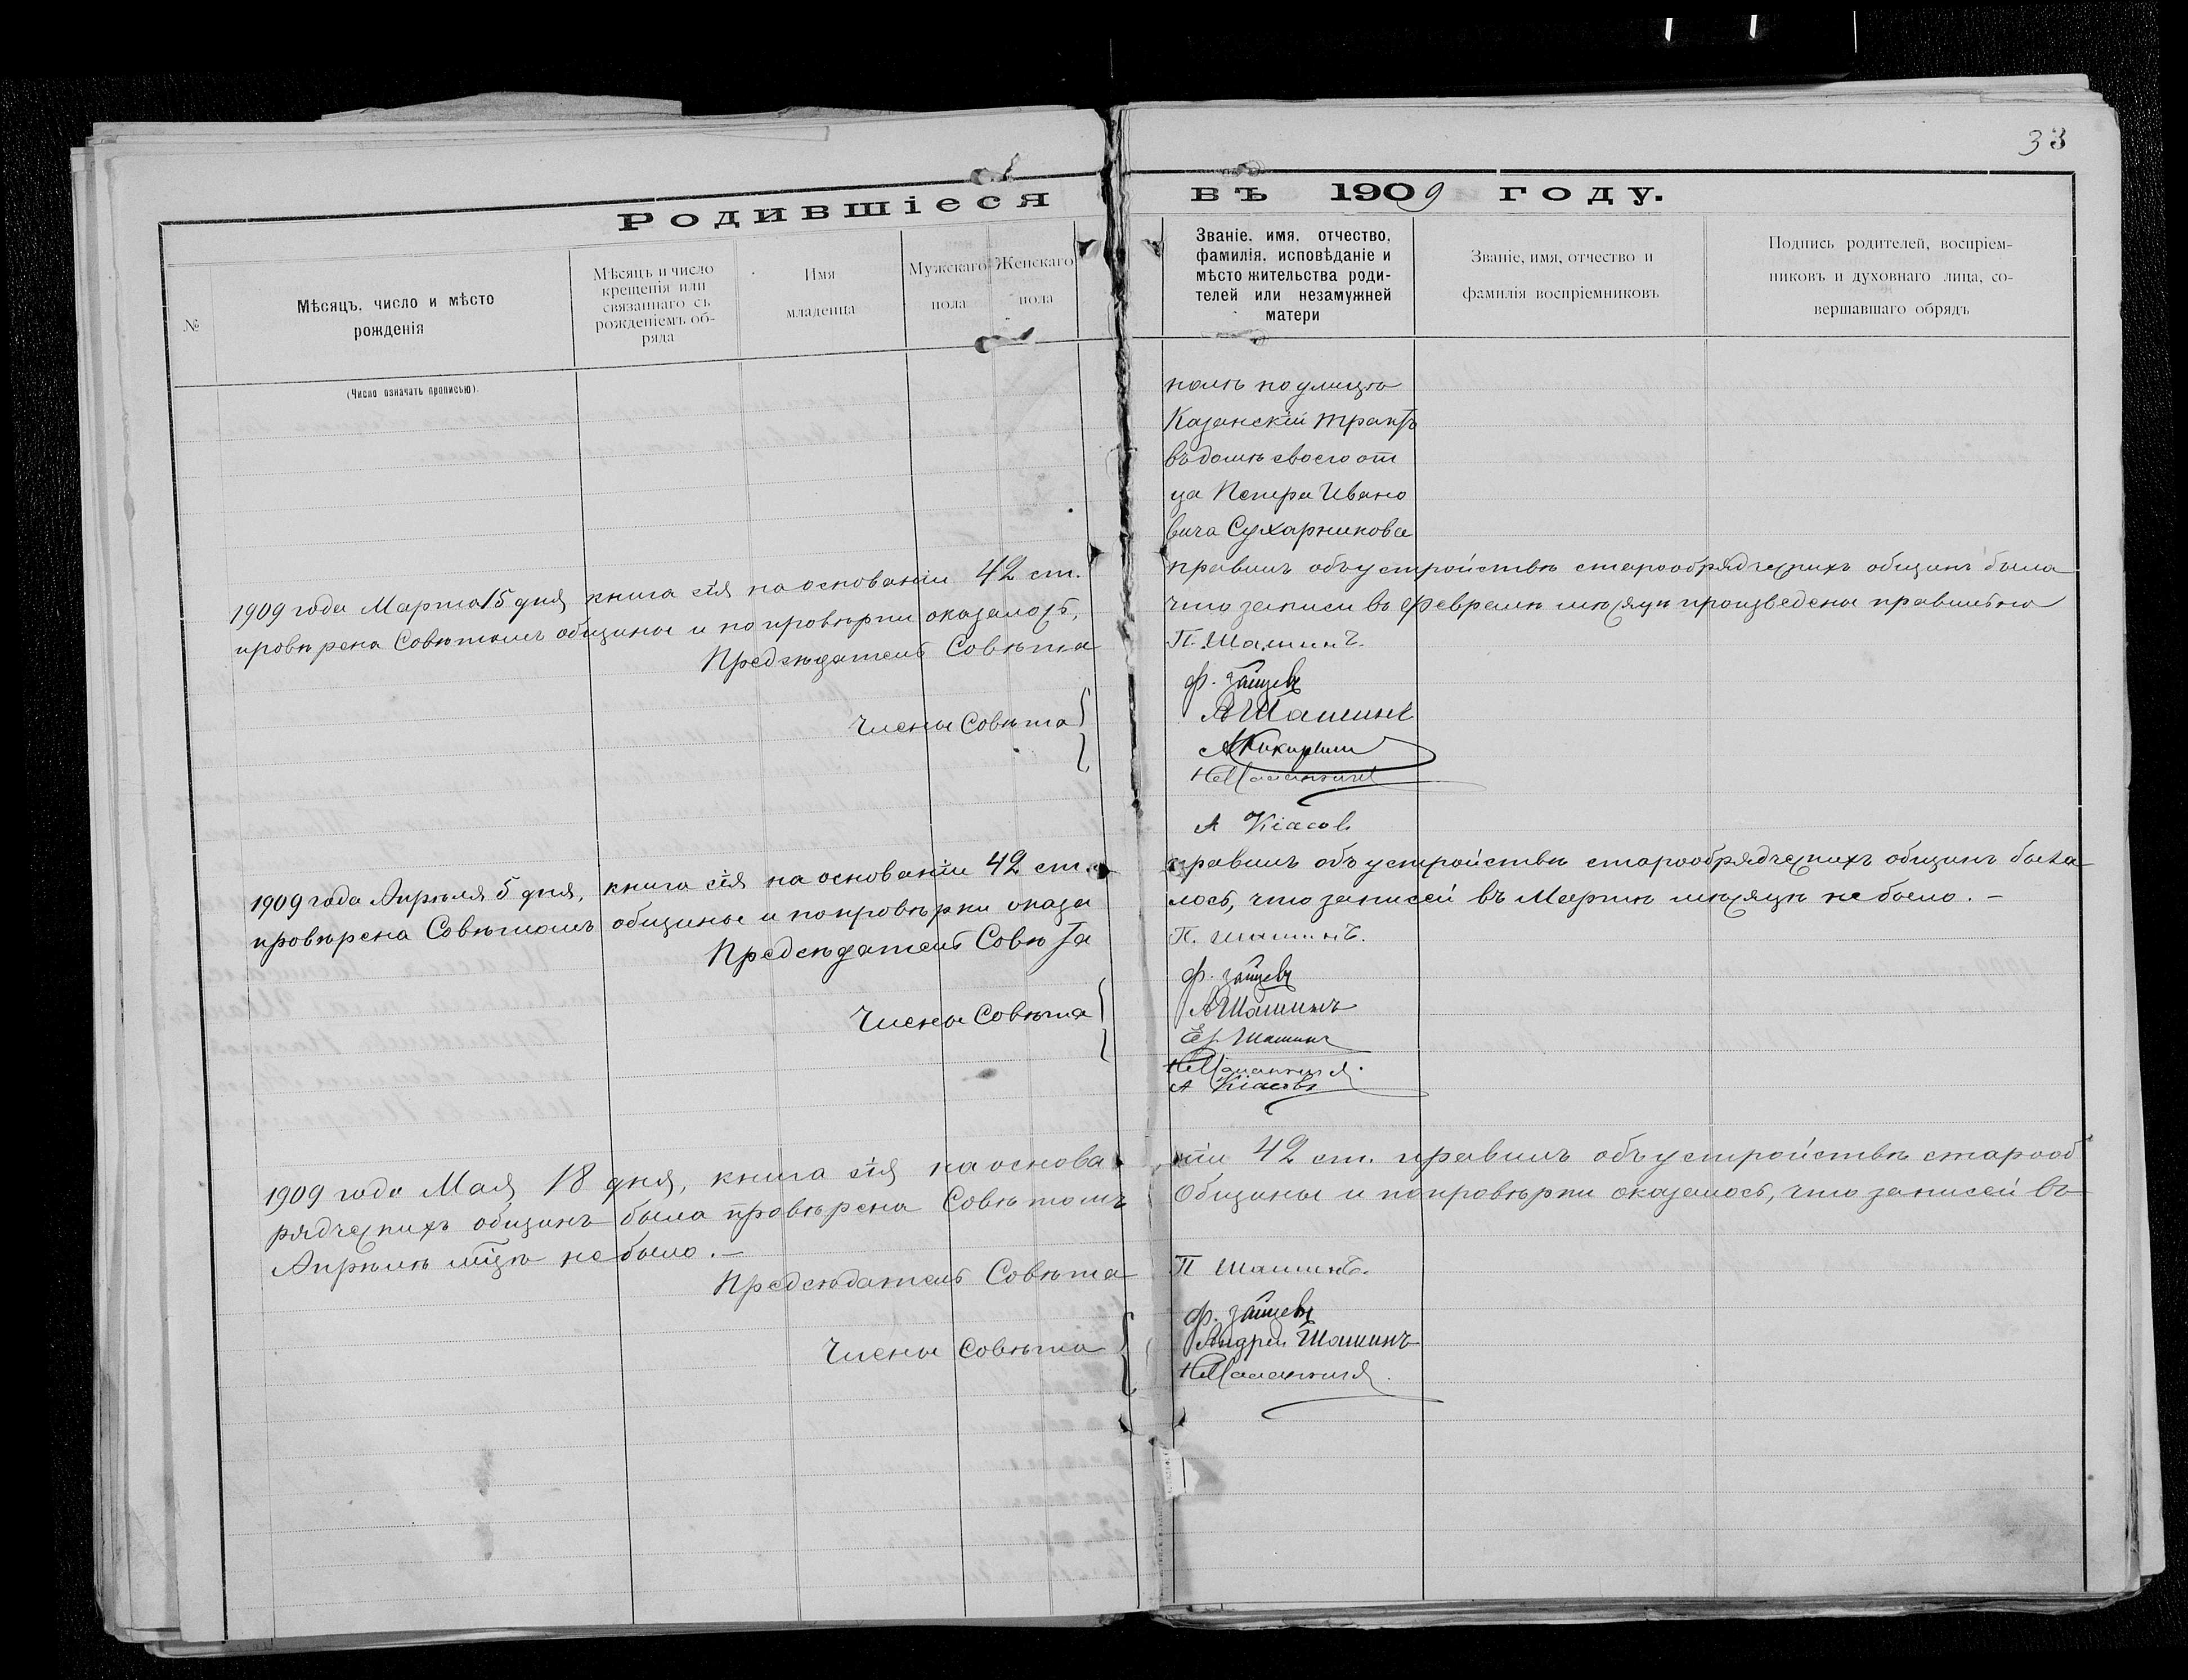 33
Родившіеся въ 1909 году.
№
Мѣсяцъ, число и мѣсто
рожденія
(Число означать прописью).
Мѣсяцъ и число
крещенія или
связаннаго съ
рожденіемъ об-
ряда
Имя
младенца
Мужскаго
пола
Женскаго
пола
Званіе, имя, отчество,
фамилія, исповѣданіе и
мѣсто жительства роди-
телей или незамужней
матери
Званіе, имя, отчество и
фамилія воспріемниковъ
Подпись родителей, воспріем-
никовъ и духовнаго лица, со-
вершавшаго обрядъ
по улицѣ
Казанскій трактъ
въ домѣ своего от
ца Петра Ивано
вича Сухарникова
1909 года Марта 15 дня книга сія на основаніи 42 ст. правилъ объ устройствѣ старообрядческихъ общинъ была
провѣрена Совѣтомъ общины и по провѣрки оказалось, что записи въ Февралѣ мѣсяцѣ произведены правильно
Предсѣдатель Совѣта П. Шашинъ.
Ф. Зайцевъ
Члены Совѣта А Шашинъ
А Кіасовъ
1909 года Апрѣля 5 дня, книга сія на основаніи 42 ст. правилъ объ устройствѣ старообрядческихъ общинъ была
провѣрена Совѣтомъ общины и по провѣрки оказа лось, что записей въ Мартѣ мѣсяцѣ не было. –
Предсѣдатель Совѣта П. Шашинъ.
Ф. Зайцевъ
Члены Совѣта А Шашинъ
Шашинъ
А Кіасовъ
1909 года Мая 18 дня, книга сія на основа ніи 42 ст. правилъ объ устройствѣ старооб
рядческихъ общинъ была провѣрена Совѣтомъ Общины и по провѣрки оказалось, что записей въ
Апрѣлѣ мцѣ не было. –
Предсѣдатель Совѣта П Шашинъ.
Ф. Зайцевъ
Члены Совѣта Андрей Шашинъ